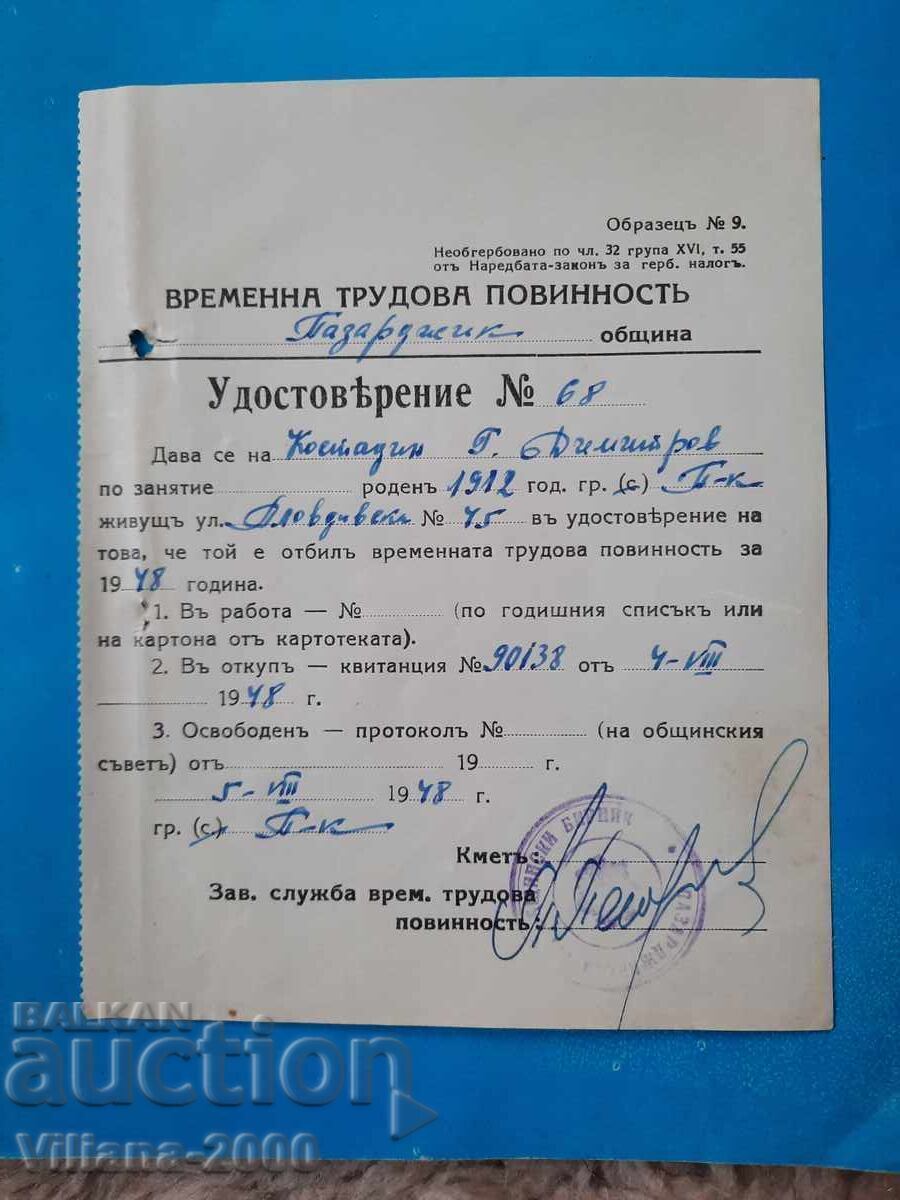 Образецъ № 9.
Необгербовано по чл. 32 група XVI, т. 55
отъ Наредбата-законъ за герб. налогъ.
ВРЕМЕННА ТРУДОВА ПОВИННОСТЬ
Пазарджик община
Удостовѣрение № 68
Дава се на Костадин Г. Димитров
по занятие роденъ 1912 год. гр. (с) П-к
живущъ ул. Пловдивска № 45 въ удостовѣрение на
това, че той е отбилъ временната трудова повинность за
1948 година.
1. Въ работа — № (по годишния списъкъ или
на картона отъ картотеката).
2. Въ откупъ — квитанция № 90138 отъ 4-VIII
1948 г.
3. Освободенъ — протоколъ № (на общинския
съветъ) отъ 19 г.
5-VIII 1948 г.
гр. (с.) П-к
Кметъ:
Зав. служба врем. трудова
повинность:
БИРНИК
BALKAN
auction
Viliana-2000